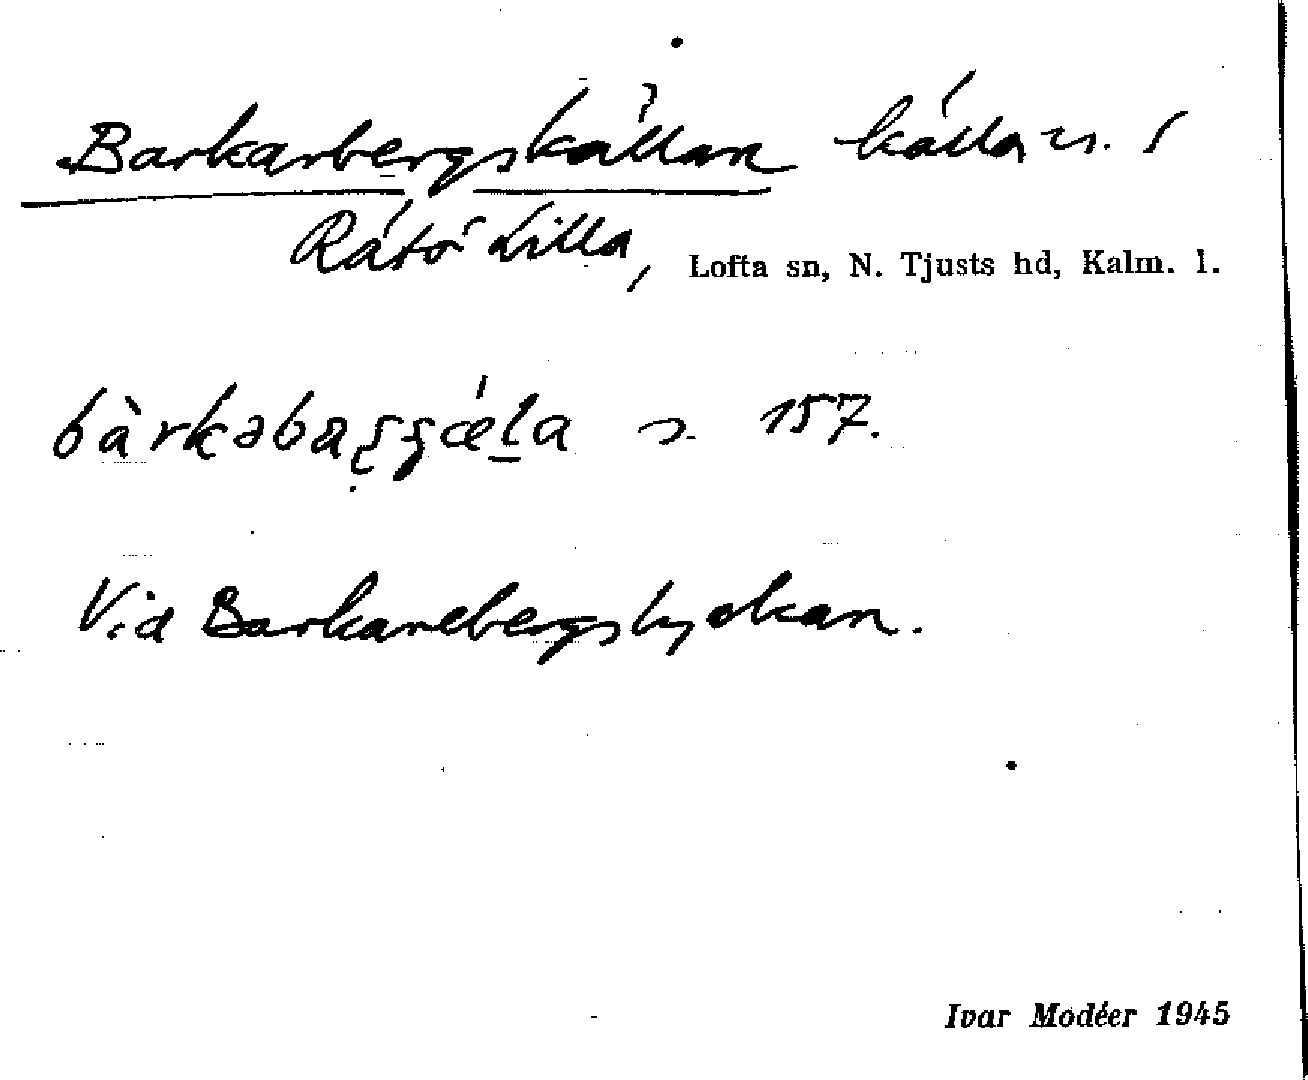 Barkarbergskällan källa n. S
Rätö Lilla, Lofta sn, N. Tjusts hd, Kalm. l.
157.
Vid Barkarebergslyckan.
Ivar Modéer 1945